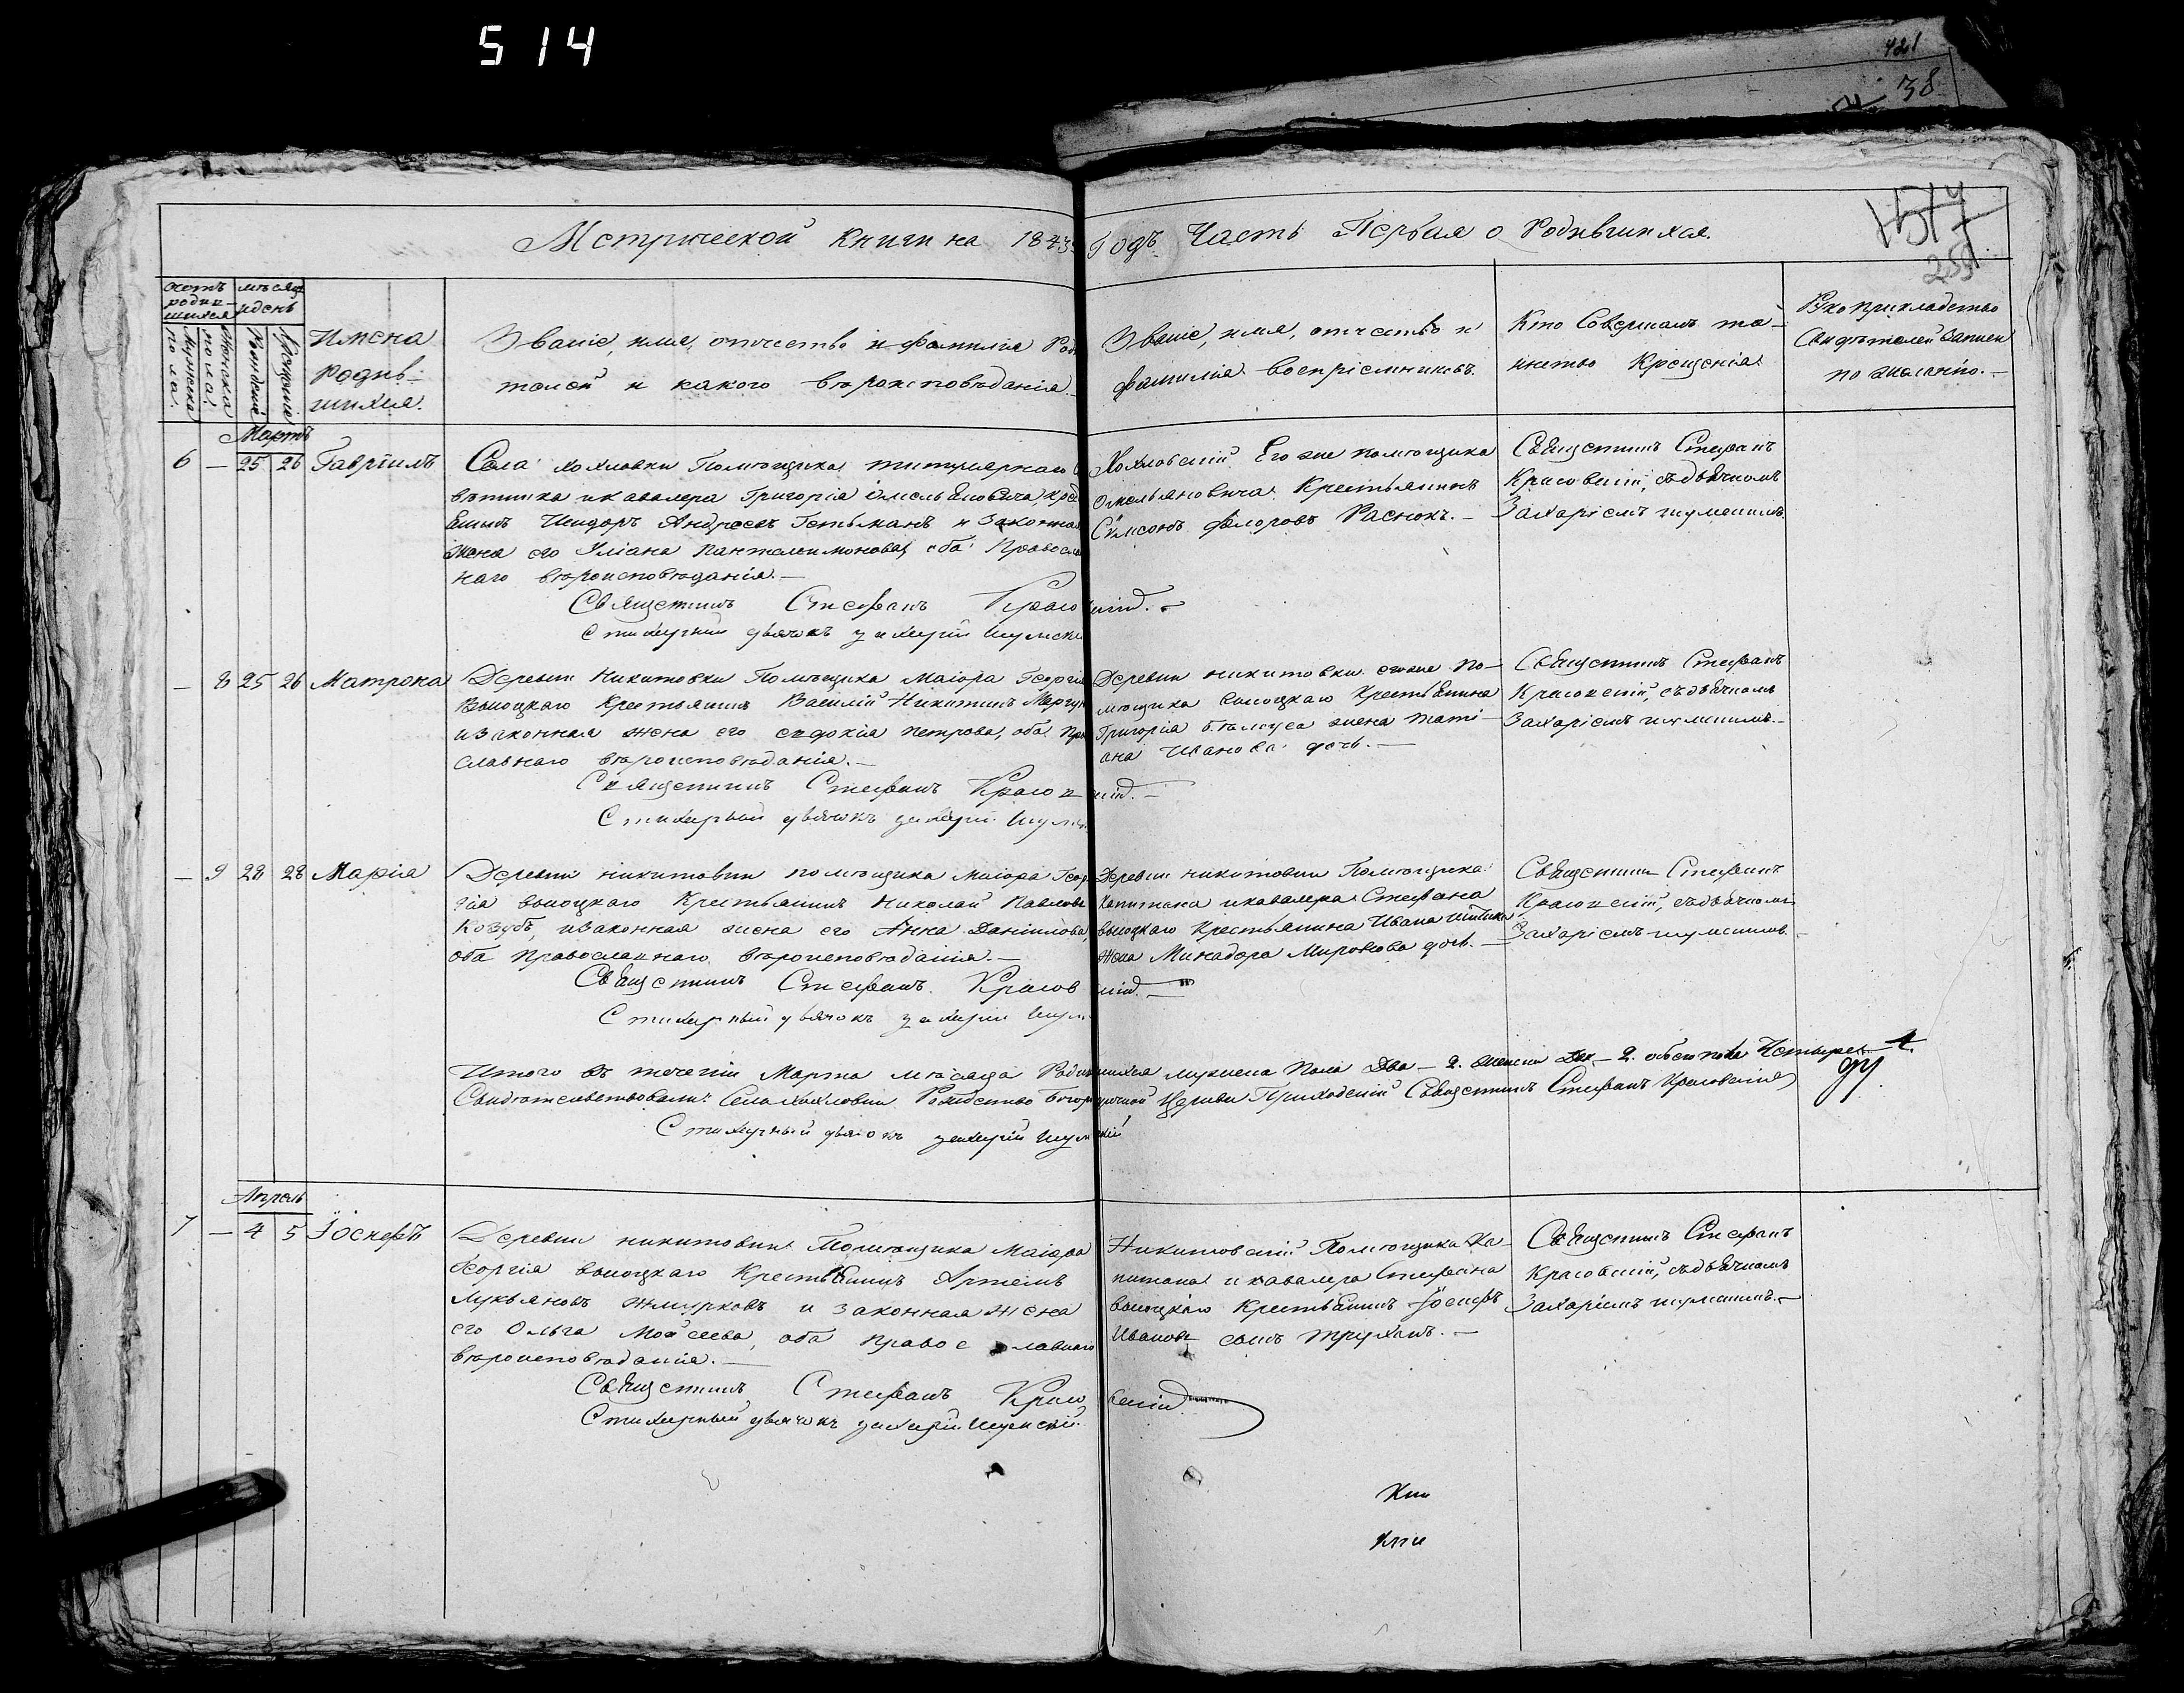 514
421
38
Метрической Книги на 1843
Годъ Часть Первая о Родившихся.
1517
259
счетъ родившихся
мѣсяцъ и день
Мужеска пола.
Женска пола.
Рожденія
Крещенія
Имена родив-
шихся.
Званіе, имя, отчество и фамилія Роди
телей и какого вѣроисповѣданія
Званіе, имя, отчество и
фамилія воспріемниковъ.
Кто Совершалъ та-
инство Крещенія
Рукоприкладство
Свидѣтелей записи
по желанію.
Мартъ
6 — 25 26 Гавріилъ
Села Хохловки Помѣщика титулярнаго Со
вѣтника и кавалера Григорія Омельяновича, крес
Исидоръ Андреевъ Гетьманъ и Законная
жена его Уліана Пантелеимонова, оба Правосла
наго вѣроисповѣданія.—
Священникъ Стефанъ Красо
вскій.
стихарный дьячокъ Захарій Шумскі
Хохловскій Его же помѣщика
Омельяновича Крестьянинъ
Сѵмеонъ Федоровъ Расюкъ.—
Священникъ Стефанъ
Красовскій, съ дьячкомъ
Захаріемъ Шумскимъ.
— 8 25 26 Матрона
Деревни Никитовки Помѣщика Маіора Георгія
Высоцкаго Крестьянинъ Василій Никитинъ
и законная жена его Евдокія Петрова, оба Пра
славнаго вѣроисповѣданія.—
Священникъ Стефанъ Красов
скій.—
Стихарный дьячокъ Захарій Шумск
Деревни Никитовки его же По-
мѣщика Высоцкаго Крестьянина
Григорія жена Таті-
ана Иванова дочь.—
Священникъ Стефанъ
Красовскій, съ дьячкомъ
Захаріемъ Шумскимъ.—
— 9 28 28 Марія
Деревни Никитовки помѣщика Маіора Геор
гія Высоцкаго Крестьянинъ Николай Павловъ
Козубъ, и законная жена его Анна Даніилова,
оба Православнаго вѣроисповѣданія.—
Священникъ Стефанъ Красов
скій.—
Стихарный дьячокъ Захарій Шум
Деревни Никитовки Помѣщика
Капитана и кавалера Стефана
Высоцкаго Крестьянина Ивана
жена Минадора Миронова дочь.—
Священникъ Стефанъ
Красовскій, съ дьячкомъ
Захаріемъ Шумскимъ.—
Итого въ теченіи Марта мѣсяца Родившихся мужеска Пола Два — 2. женска Два — 2. обоего пола Четыре — 4.
Свидѣтельствовали: Села Хохловки Рождество Богородичной Церкви Приходскій Священникъ Стефанъ Красовскій
Стихарный дьячокъ Захарій Шумскій
Апрель
7 — 4 5 Іосифъ
Деревни Никитовки Помѣщика Маіора
Георгія Высоцкаго Крестьянинъ Артемъ
Лукьяновъ Жмурковъ и законная жена
его Ольга Моисеева, оба Православнаго
вѣроисповѣданія.—
Священникъ Стефанъ Красо
вскій
Стихарный дьячокъ Захарій Шумскій.
Никитовскій Помѣщика Ка-
питана и кавалера Стефана
Высоцкаго Крестьянинъ Іосифъ
Ивановъ сынъ Труханъ.—
Священникъ Стефанъ
Красовскій, съ дьячкомъ
Захаріемъ Шумскимъ.—